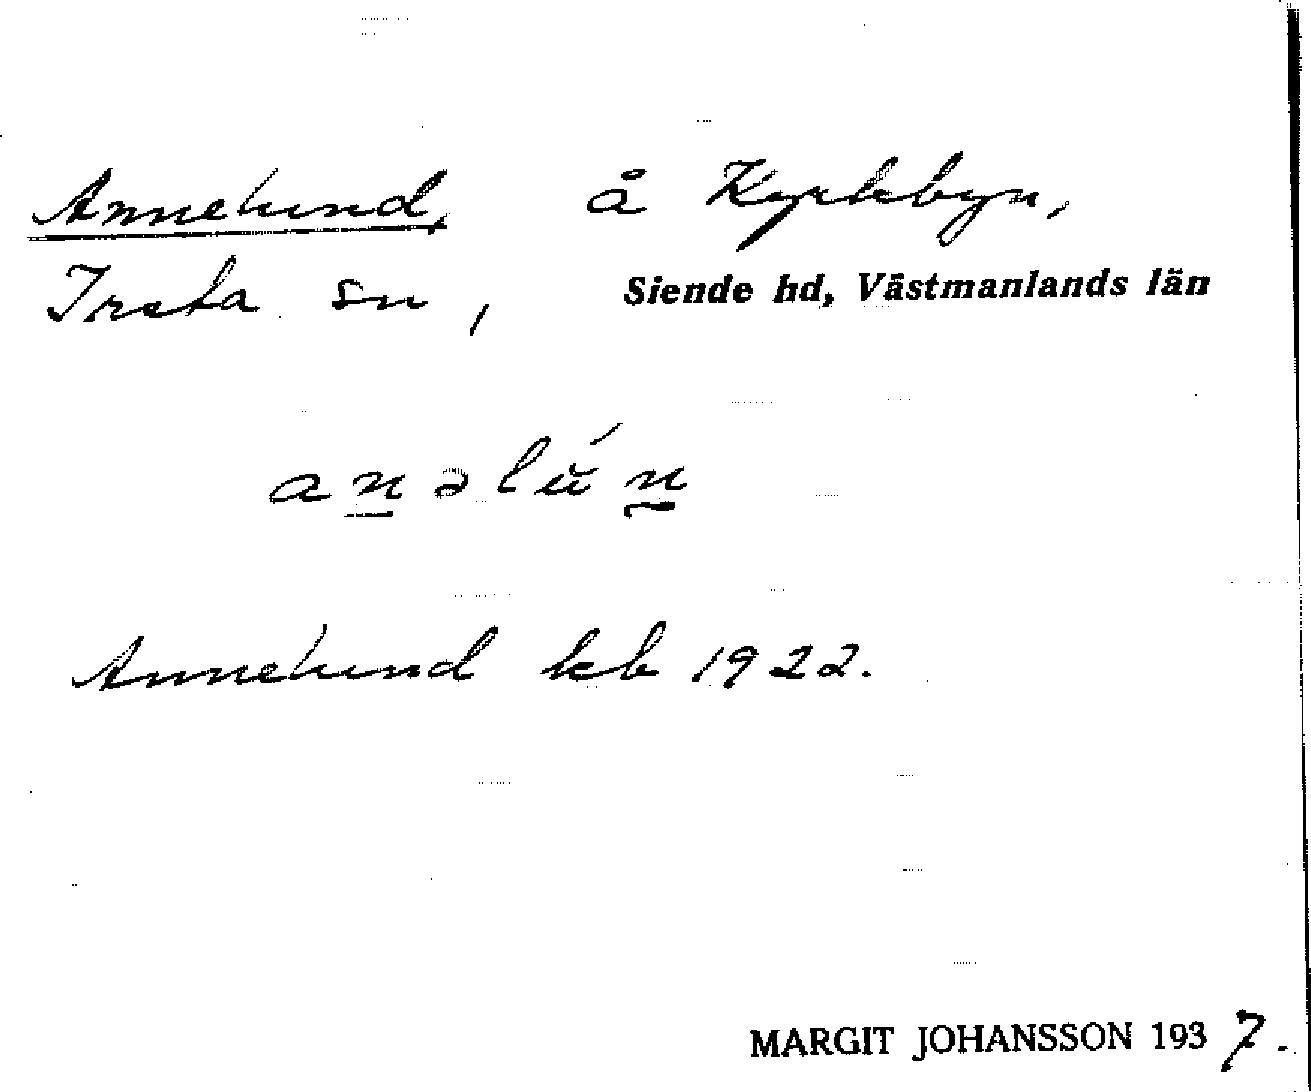 Annelund, å Kyrkbyn,
Irsta sn, Siende hd, Västmanlands län
anəlŭ́n
Annelund kb 1922.
MARGIT JOHANSSON 1937.